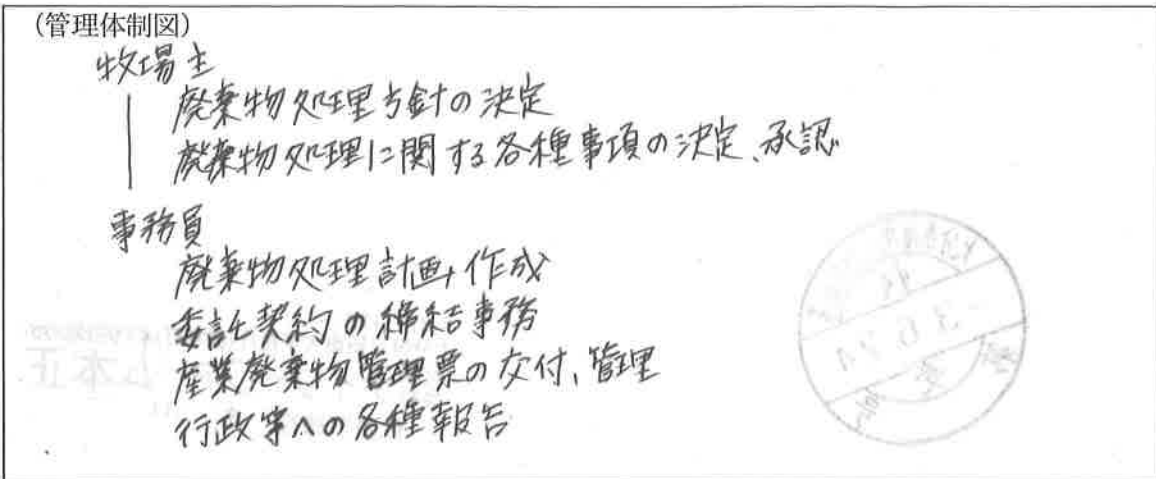 (管理体制図)
牧場主
廃棄物処理方針の決定
廃棄物処理に関する各種事項の決定、承認
事務員
廃棄物処理計画作成
委託契約の締結事務
産業廃棄物管理票の交付、管理
行政等への各種報告